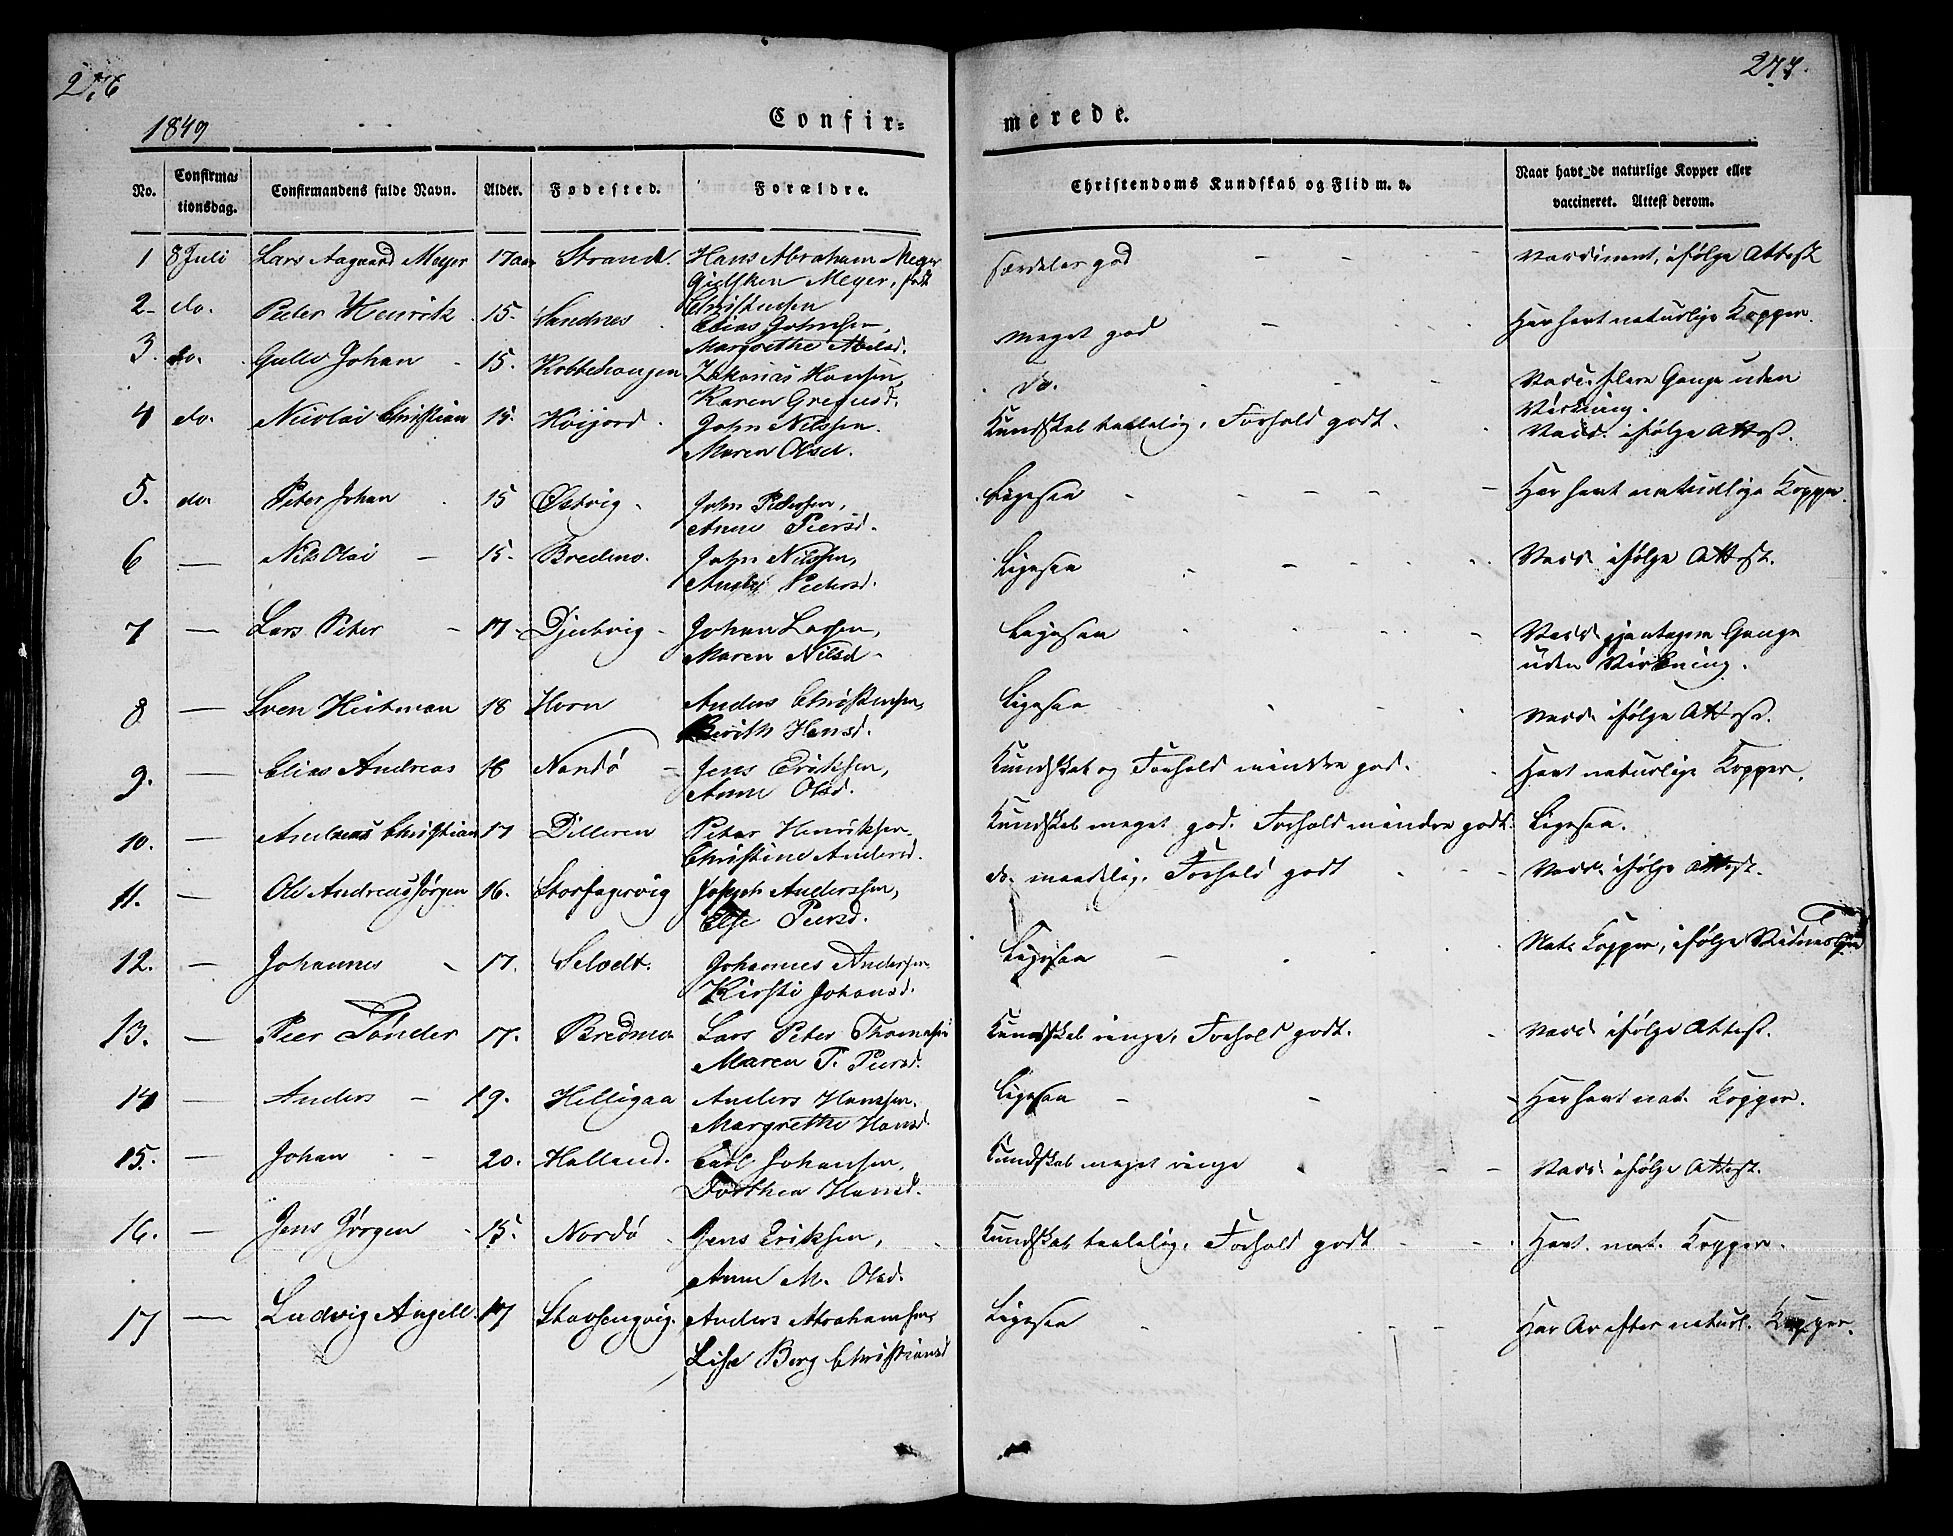 276
277.
1849
Confir=
merede.
No.
Confirma=
tionsdag.
Confirmandens fulde Navn.
Alder.
Fødested.
Forældre.
Christendoms Kundskab og Flid m. v.
Naar havt de naturlige Kopper eller
vaccineret. Attest derom.
1 8 Juli Lars Aagaard Meyer 17 aar Strand. Hans Abraham Meyer særdeles god - - - Vaccineret, ifølge Attest
Gielsken Meyer, født
Christensen
2 do. Peter Henrik 15. Sandnes Elias Johnsen, meget god - Har havt naturlige Kopper.
Margrethe Abelsd.
3. do. Gullev Johan - 15. Kobbehaugen Zakarias Hansen, do. - - - Vacc. flere Gange uden
Karen Gregusd. Virkning.
4 do. Nicolai Christian 15. Höijord. John Nilssen. Kundskab taalelig, Forhold godt. Vacc. ifølge Attest.
Maren Olsd.
5. do. Peter Johan 15 Østvig - John Pedersen, Ligesaa - - - - - Har havt naturlige Kopper.
Anne Peersd.
6 — Nils Olai - 15. Bredmo. John Nilssen, Ligesaa Vacc. ifølge Attest.
Pedersd.
7 — Lars Peter - 17 - Djubvig - Johan Larsen, Ligesaa Vacc. gjentagne Gange
Maren Nilsd. uden Virkning.
8 — Sven Heitman 18 Horn Anders Christensen, Ligesaa Vacc. ifølge Attest.
Berith Hansd.
9. — Elias Andreas 18 Nordö - Jens Eriksen, Kundskab og Forhold mindre god. Havt naturlige Kopper.
Anne Olsd.
10. — Andreas Christian 17 Dilleren Peter Henriksen. Kundskab meget god. Forhold mindre godt. Ligesaa.
Christine Andersd.
11. — Ole Andreas Jörgen 16. Storfagervig Joseph Anderssen, do. maadelig, Forhold godt Vacc. ifølge Attest.
Else Peersd.
12. — Johannes - 17. Selvedt. Johannes Andersen Ligesaa - Nat. Kopper, ifølge
Kirsti Johansd.
13. — Peer Tönder 17. Bredmo Lars Peter Thomassen Kundskab ringe, Forhold godt. Vacc. ifølge Attest.
Maren P. Peersd.
14 — Anders - 19. Helligaa Anders Hanssen. Ligesaa - - Har havt nat. Kopper.
Margrethe Hansd.
15. — Johan - 20. Halland. Carl Johansen, Kundskab meget ringe - - Vacc. ifølge Attest.
Dorthea Hansd.
16. — Jens Jörgen - 15. Nordö Jens Eriksen, Kundskab taalelig, Forhold godt - - Havt nat. Kopper.
Anne M. Olsd.
17 — Ludvig Angell. 17 Stavsengvig. Anders Abrahamsen, Ligesaa Har Ar efter naturl. Kopper.
Lise Berg Christiansd